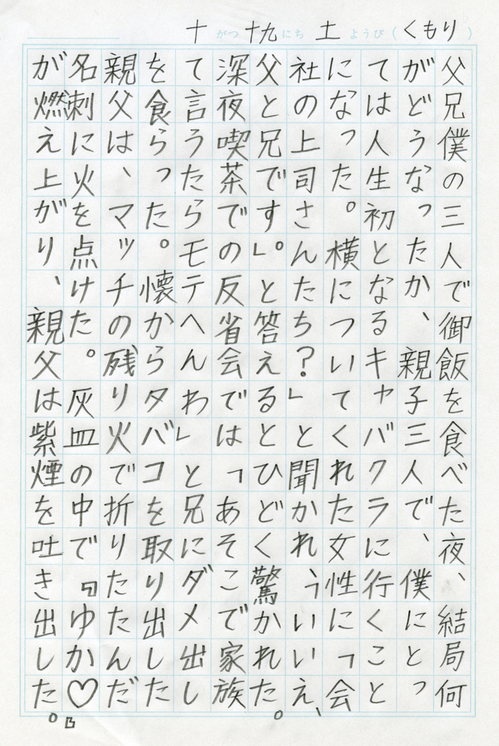 十がつ十九にち土ようび(くもり)
父兄僕の三人で御飯を食べた夜、結局何
がどうなったか、親子三人で、僕にとっ
ては人生初となるキャバクラに行くこと
になった。横についてくれた女性に「会
社の上司さんたち?」と聞かれ、「いいえ、
父と兄です」。と答えるとひどく驚かれた。
深夜喫茶での反省会では「あそこで家族
て言うたらモテへんわ」と兄にダメ出し
を食らった。懐からタバコを取り出した
親父は、マッチの残り火で折りたたんだ
名刺に火を点けた。灰皿の中で『ゆか♡』
が燃え上がり、親父は紫煙を吐き出した。